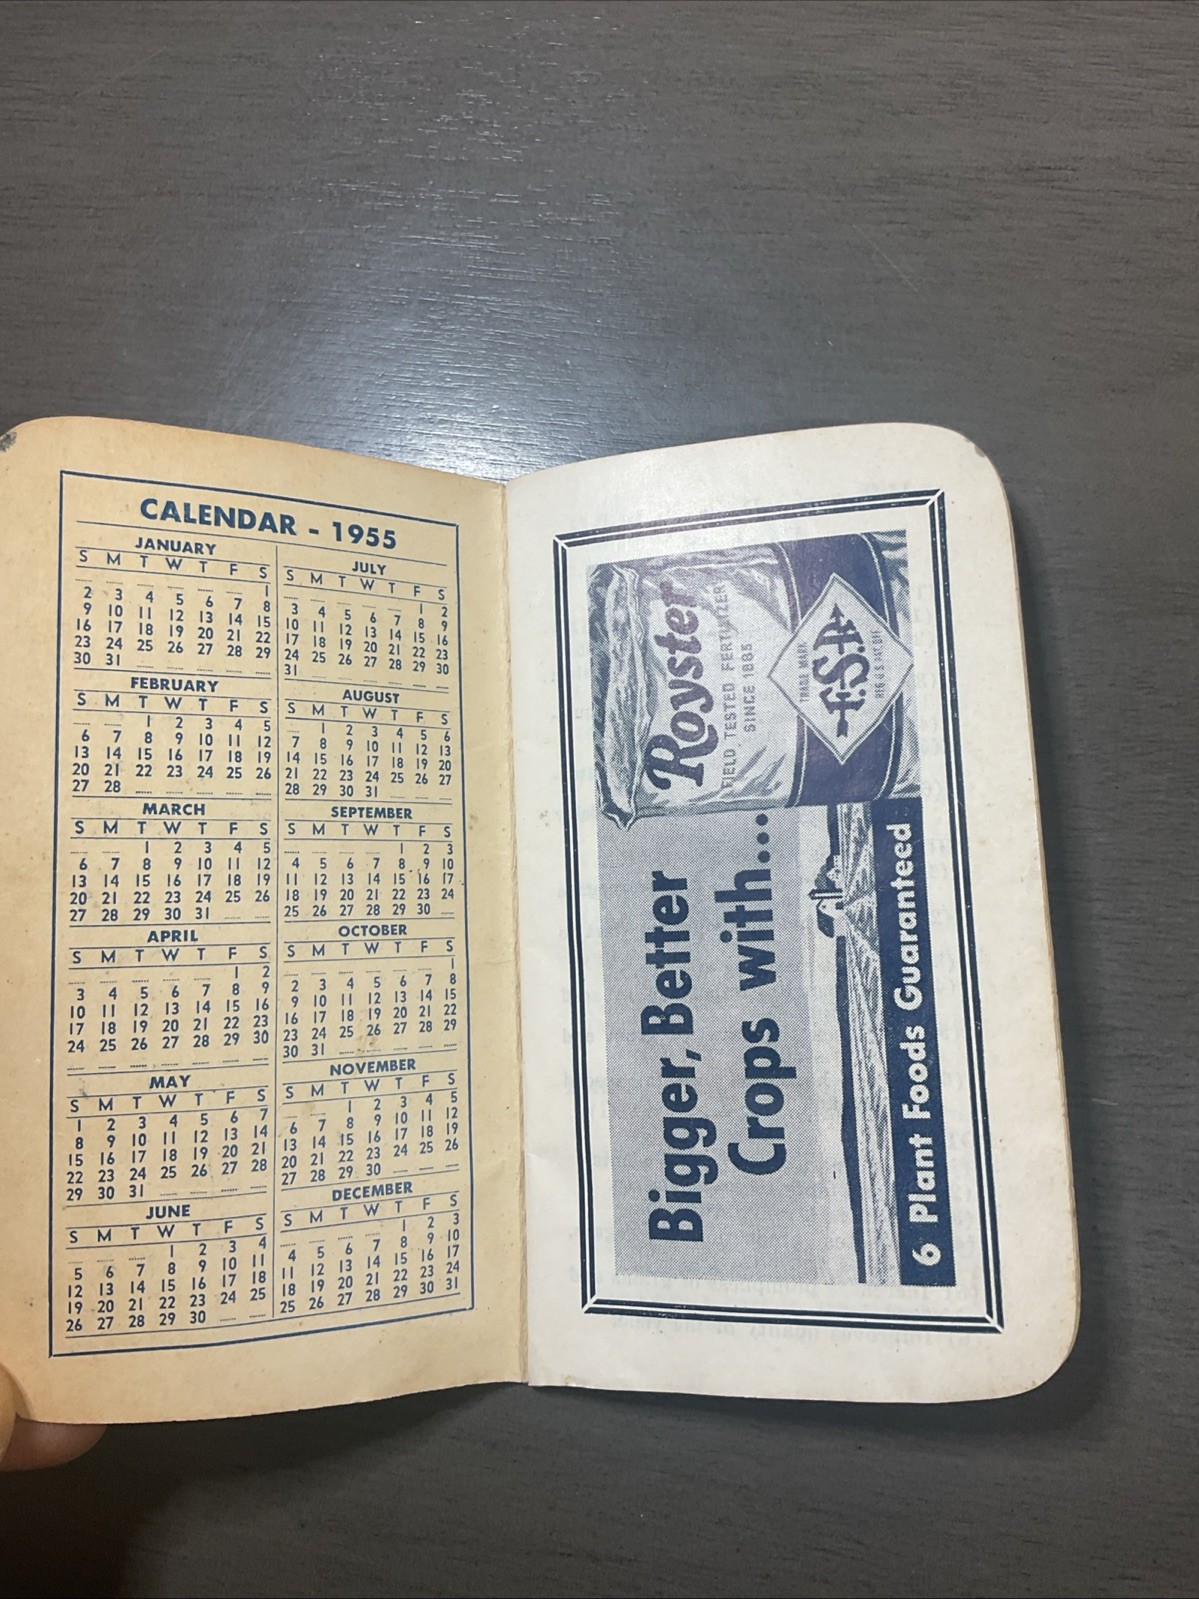 CALENDAR - 1955
JANUARY
S M T W T F S
1
2 3 4 5 6 7 8
9 10 11 12 13 14 15
16 17 18 19 20 21 22
23 24 25 26 27 28 29
30 31
FEBRUARY
S M T W T F S
1 2 3 4 5
6 7 8 9 10 11 12
13 14 15 16 17 18 19
20 21 22 23 24 25 26
27 28
MARCH
S M T W T F S
1 2 3 4 5
6 7 8 9 10 11 12
13 14 15 16 17 18 19
20 21 22 23 24 25 26
27 28 29 30 31
APRIL
S M T W T F S
1 2
3 4 5 6 7 8 9
10 11 12 13 14 15 16
17 18 19 20 21 22 23
24 25 26 27 28 29 30
MAY
S M T W T F S
1 2 3 4 5 6 7
8 9 10 11 12 13 14
15 16 17 18 19 20 21
22 23 24 25 26 27 28
29 30 31
JUNE
S M T W T F S
1 2 3 4
5 6 7 8 9 10 11
12 13 14 15 16 17 18
19 20 21 22 23 24 25
26 27 28 29 30
JULY
S M T W T F S
1 2
3 4 5 6 7 8 9
10 11 12 13 14 15 16
17 18 19 20 21 22 23
24 25 26 27 28 29 30
31
AUGUST
S M T W T F S
1 2 3 4 5 6
7 8 9 10 11 12 13
14 15 16 17 18 19 20
21 22 23 24 25 26 27
28 29 30 31
SEPTEMBER
S M T W T F S
1 2 3
4 5 6 7 8 9 10
11 12 13 14 15 16 17
18 19 20 21 22 23 24
25 26 27 28 29 30
OCTOBER
S M T W T F S
1
2 3 4 5 6 7 8
9 10 11 12 13 14 15
16 17 18 19 20 21 22
23 24 25 26 27 28 29
30 31
NOVEMBER
S M T W T F S
1 2 3 4 5
6 7 8 9 10 11 12
13 14 15 16 17 18 19
20 21 22 23 24 25 26
27 28 29 30
DECEMBER
S M T W T F S
1 2 3
4 5 6 7 8 9 10
11 12 13 14 15 16 17
18 19 20 21 22 23 24
25 26 27 28 29 30 31
Bigger, Better
Crops with...
Royster
FIELD TESTED FERTILIZER
SINCE 1885
TRADE MARK
F.S.R.
REG. U.S. PAT. OFF.
6 Plant Foods Guaranteed